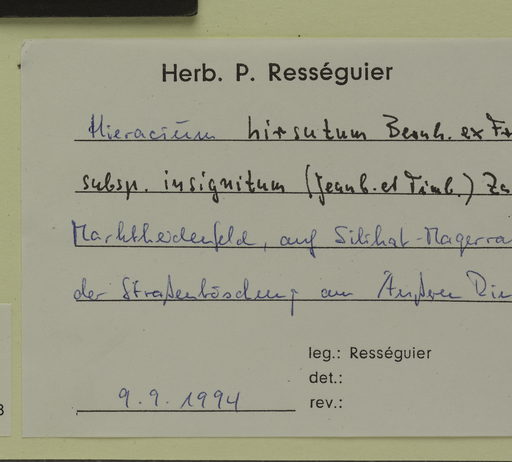 Herb. P. Rességuier
Hieracium hirsutum Bernh. ex Fr
subsp. insignitum (Jeanb. et Timb.) Za
Marktheidenfeld, auf Silikat-Magerra
der Straßenböschung am Äußeren Rin
leg.: Rességuier
det.:
9.9.1994 rev.:
3